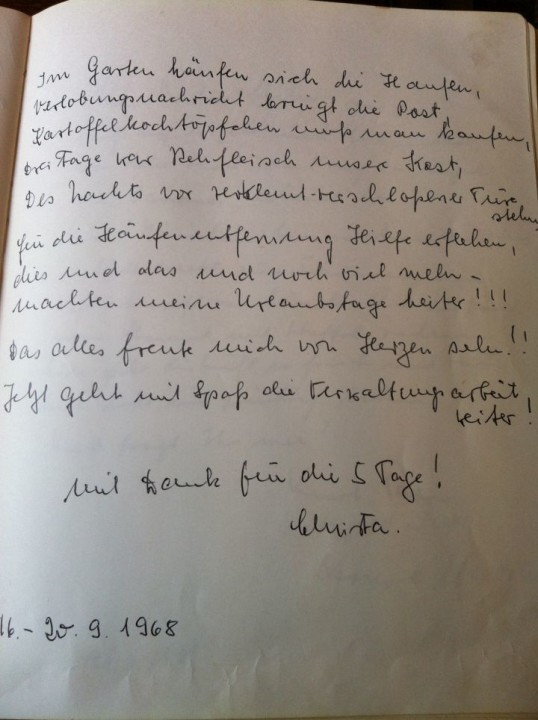 Im Garten häufen sich die Haufen,
Verlobungsnachricht bringt die Post,
Kartoffelkochtöpfchen muß man kaufen,
drei Tage war Rehfleisch unsere Kost,
Des Nachts vor verklemt-verschloßener Türe
stehn,
für die Häufenentfernung Hilfe erflehen,
dies und das und noch viel mehr –
machten meine Urlaubstage heiter!!!
Das alles freute mich von Herzen sehr!!
Jetzt geht mit Spaß die Verwaltungsarbeit
weiter!
Mit Dank für die 5 Tage!
Christa.
16. – 20. 9. 1968